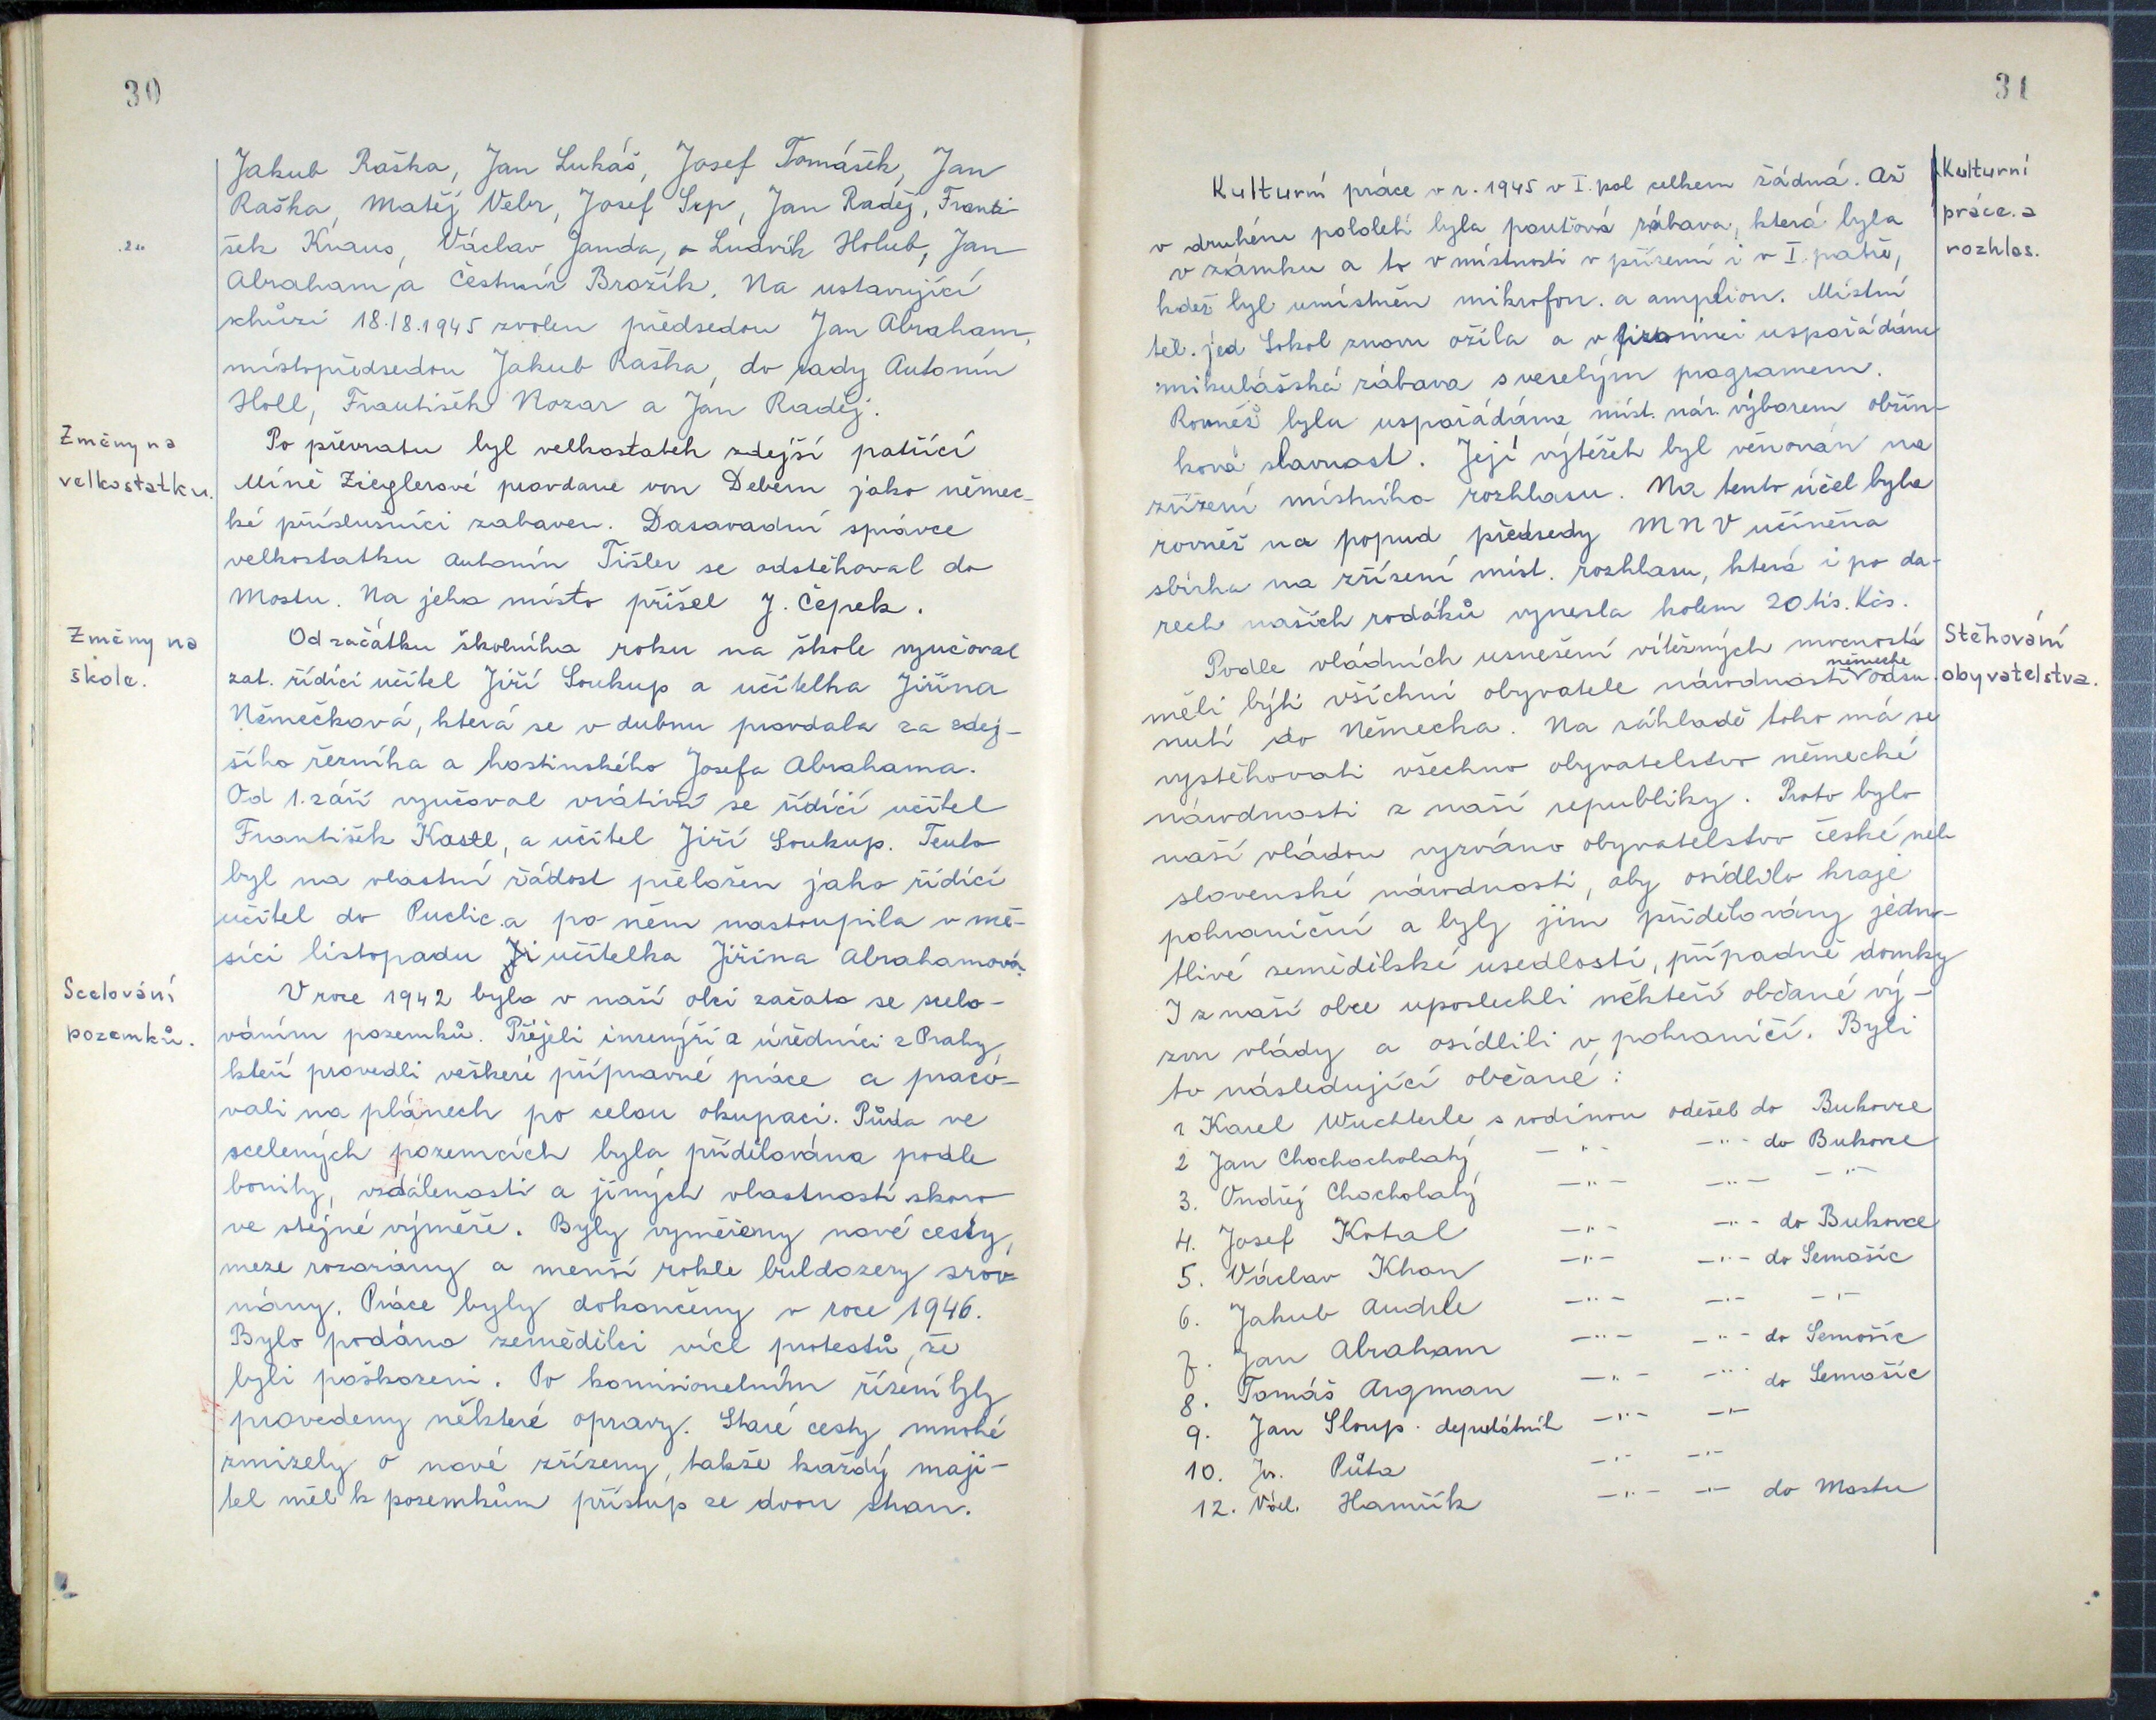 30
Jakub Raška, Jan Lukáš, Josef Tomášek, Jan
Raška, Matěj Vebr, Josef Srp, Jan Raděj, Franti-
šek Knaus, Václav Janda, a Ludvík Holub, Jan
Abraham, a Čestmír Brožík. Na ustavující
schůzi 18./8.1945 zvolen předsedou Jan Abraham,
místopředsedou Jakub Raška, do rady Antonín
Holl, František Nozar a Jan Raděj.
Změny na
velkostatku.
Po převratu byl velkostatek zdejší patřící
Míně Zieglerové provdané von Debern jako němec-
ké příslušnici zabaven. Dosavadní správce
velkostatku Antonín Tišler se odstěhoval do
Mostu. Na jeho místo přišel J. Čepek.
Změny na
škole.
Od začátku školního roku na škole vyučoval
zat. řídící učitel Jiří Soukup a učitelka Jiřina
Němečková, která se v dubnu provdala za zdej-
šího řezníka a hostinského Josefa Abrahama.
Od 1. září vyučoval vrátivší se řídící učitel
František Kastl, a učitel Jiří Soukup. Tento
byl na vlastní žádost přeložen jako řídící
učitel do Puclic a po něm nastoupila v mě-
síci listopadu Ji učitelka Jiřina Abrahamová.
Scelování
pozemků.
V roce 1942 bylo v naší obci začato se scelo-
váním pozemků. Přijeli inženýři a úředníci z Prahy,
kteří provedli veškeré přípravné práce a praco-
vali na plánech po celou okupaci. Půda ve
scelených pozemcích byla přidělována podle
bonity, vzdálenosti a jiných vlastností skoro
ve stejné výměře. Byly vyměřeny nové cesty,
meze rozorány a menší rokle buldozery srov-
nány. Práce byly dokončeny v roce 1946.
Bylo podáno zemědělci více protestů, že
byli poškozeni. Po komisionelním řízení byly
provedeny některé opravy. Staré cesty mnohé
zmizely a nové zřízeny, takže každý maji-
tel měl k pozemkům přístup ze dvou stran.
31
Kulturní
práce a
rozhlas.
Kulturní práce v r. 1945 v I. pol celkem žádná. Až
v druhém pololetí byla pouťová zábava, která byla
v zámku a to v místnosti v přízemí i v I. patře,
kdež byl umístněn mikrofon. a amplion. Místní
těl. jed Sokol znovu ožila a v prosinci uspořádána
mikulášská zábava s veselým programem.
Rovněž byla uspořádána míst. nár. výborem obžín-
ková slavnost. Její výtěžek byl věnován na
zřízení místního rozhlasu. Na tento účel byla
rovněž na popud předsedy MNV učiněna
sbírka na zřízení míst. rozhlasu, která i po da-
rech našich rodáků vynesla kolem 20 tis. Kčs.
Stěhování
obyvatelstva.
Podle vládních usnešení vítězných mocností
měli býti všichni obyvatele národnosti německé odsu-
nuti do Německa. Na základě toho má se
vystěhovati všechno obyvatelstvo německé
národnosti z naší republiky. Proto bylo
naší vládou vyzváno obyvatelstvo české neb
slovenské národnosti, aby osídlilo kraje
pohraniční a byly jim přidělovány jedno-
tlivé zemědělské usedlosti, případně domky
I z naší obce uposlechli někteří občané vý-
zvu vlády a osídlili v pohraničí. Byli
to následující občané:
1 Karel Wuchterle s rodinou odešel do Bukovce
2 Jan Chochocholatý —"— —"— do Bukovce
3. Ondřej Chocholatý —"— —"— —"—
4. Josef Kotal —"— —"— do Bukovce
5. Václav Khon —"— —"— do Semošic
6. Jakub Audrle —"— —"— —"—
7. Jan Abraham —"— —"— do Semošic
8. Tomáš Argman —"— —"— do Semošic
9. Jan Sloup. deputátník —"— —"—
10. Jos. Půta —"— —"—
12. Václ. Hamřík —"— —"— do Mostu